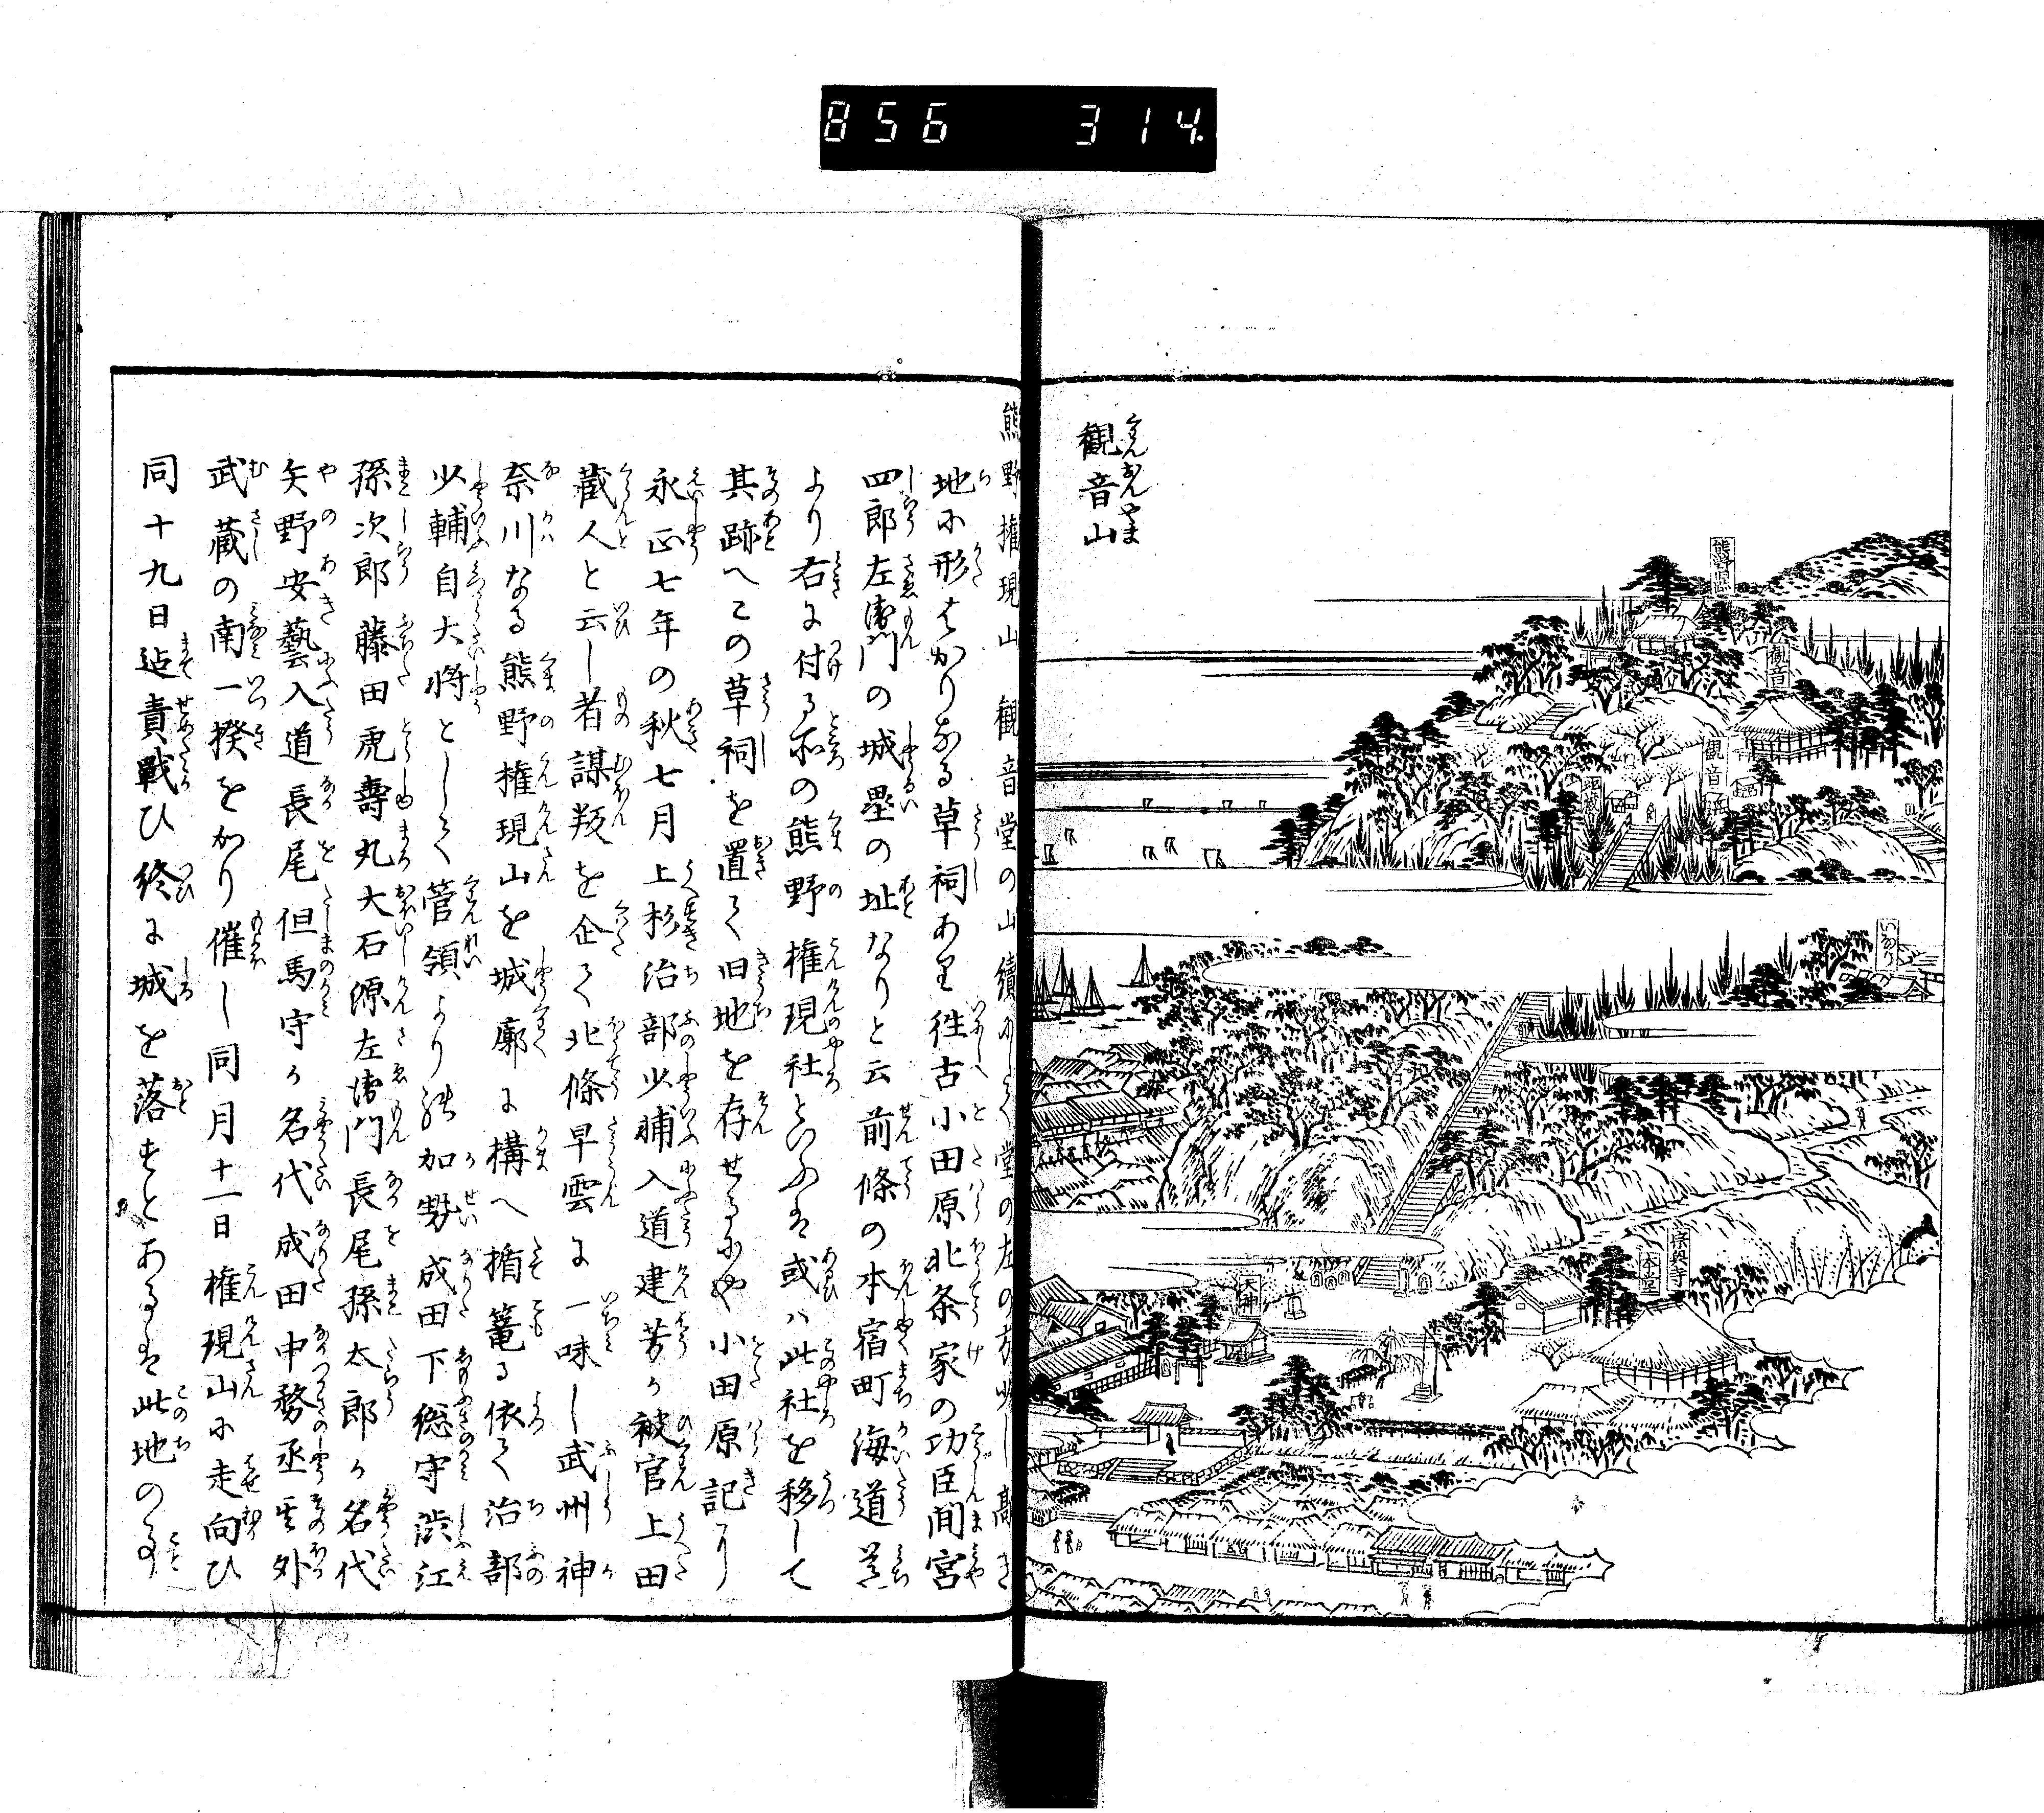 856 314
観音山
くわんおんやま
熊野
観音
観音
地蔵
いなり
本堂
天神
熊野権現山 観音堂の山續にして堂の左の方少し高き
地に形はかりなる草祠あり往古小田原北条家の功臣間宮
四郎左衛門の城塁の址なりと云前條の本宿町海道
より右に付る所の熊野権現社といふは或ハ此社を移して
其跡へこの草祠を置て旧地を存せるにや小田原記に
永正七年の秋七月上杉治部少輔入道建芳か被官上田
蔵人と云し者謀叛を企て北條早雲に一味し武州神
奈川なる熊野権現山を城廓に構へ楯篭る依て治部
少輔自大将として管領より加勢成田下総守渋江
孫次郎藤田虎壽丸大石源左衛門長尾孫太郎か名代
矢野安藝入道長尾但馬守か名代成田中務丞其外
武蔵の南一揆をかり催し同月十一日権現山に走向ひ
同十九日迠責戰ひ終に城を落すとあるは此地の事